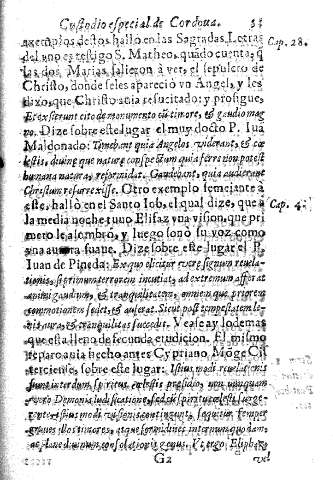 Custodio especial de Cordoua. 51
exemplos destos hallo en las Sagradas Letras
del vno es testigo S. Matheo, quãdo cuenta, q̃
las dos Marias salieron à ver, el sepulcro de
Christo, donde seles apareciò vn Angel, y les
dixo, que Christo auia resucitado; y prosigue,
Et exierunt cito de monumento cũ timore, & gaudio mag
no. Dize sobre este lugar el muy docto P. Iuã
Maldonado: Timebant quia Angelos viderant, & cœ
lestis, diuinæque naturæ conspectum quia ferre non potest
humana natura, reformidat. Gaudebant, quia audierant
Christum resurrexisse. Otro exemplo semejante à
este, hallò en el Santo Iob, el qual dize, que à
la media noche tuuo Elifaz vna vision, que pri
mero le asombrò, y luego sonò su voz como
vna aurora suaue. Dize sobre este lugar el P.
Iuan de Pineda: Ex quo elicitur verè signum reuela-
tionis, si primum terrorem incutiat, ad extremum afferat
animi gaudium, & tranquilitatem, omnem que priorem
commotionem sedet, & auferat. Sicut post tempestatem le-
nis aura, & tranquilitas succedit. Vease ay lo demas
que esta lleno de fecunda erudicion. El mismo
reparo auia hecho antes Cypriano Mõge Cis
terciense, sobre este lugar: Istius modi reuelationis
sunt interdum, spiritus cœlestis præsidio, non nunquam
vero Demonis ludificatione, sed si spiritu cœlesti surge-
istius modi visiones contingent, sequitur semper
graues illos timores, atque horrores internos quodam-
diuinum consolationis genus. Vt ergo Eliphaz
G2
Cap. 28.
Cap. 4.